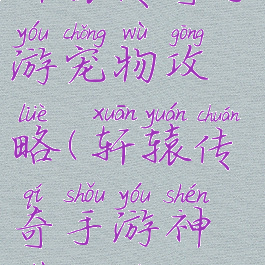 yóu chǒng wù gōng
游宠物攻
lüè xuān yuán chuán
略(轩辕传
qí shǒu yóu shén
奇手游神